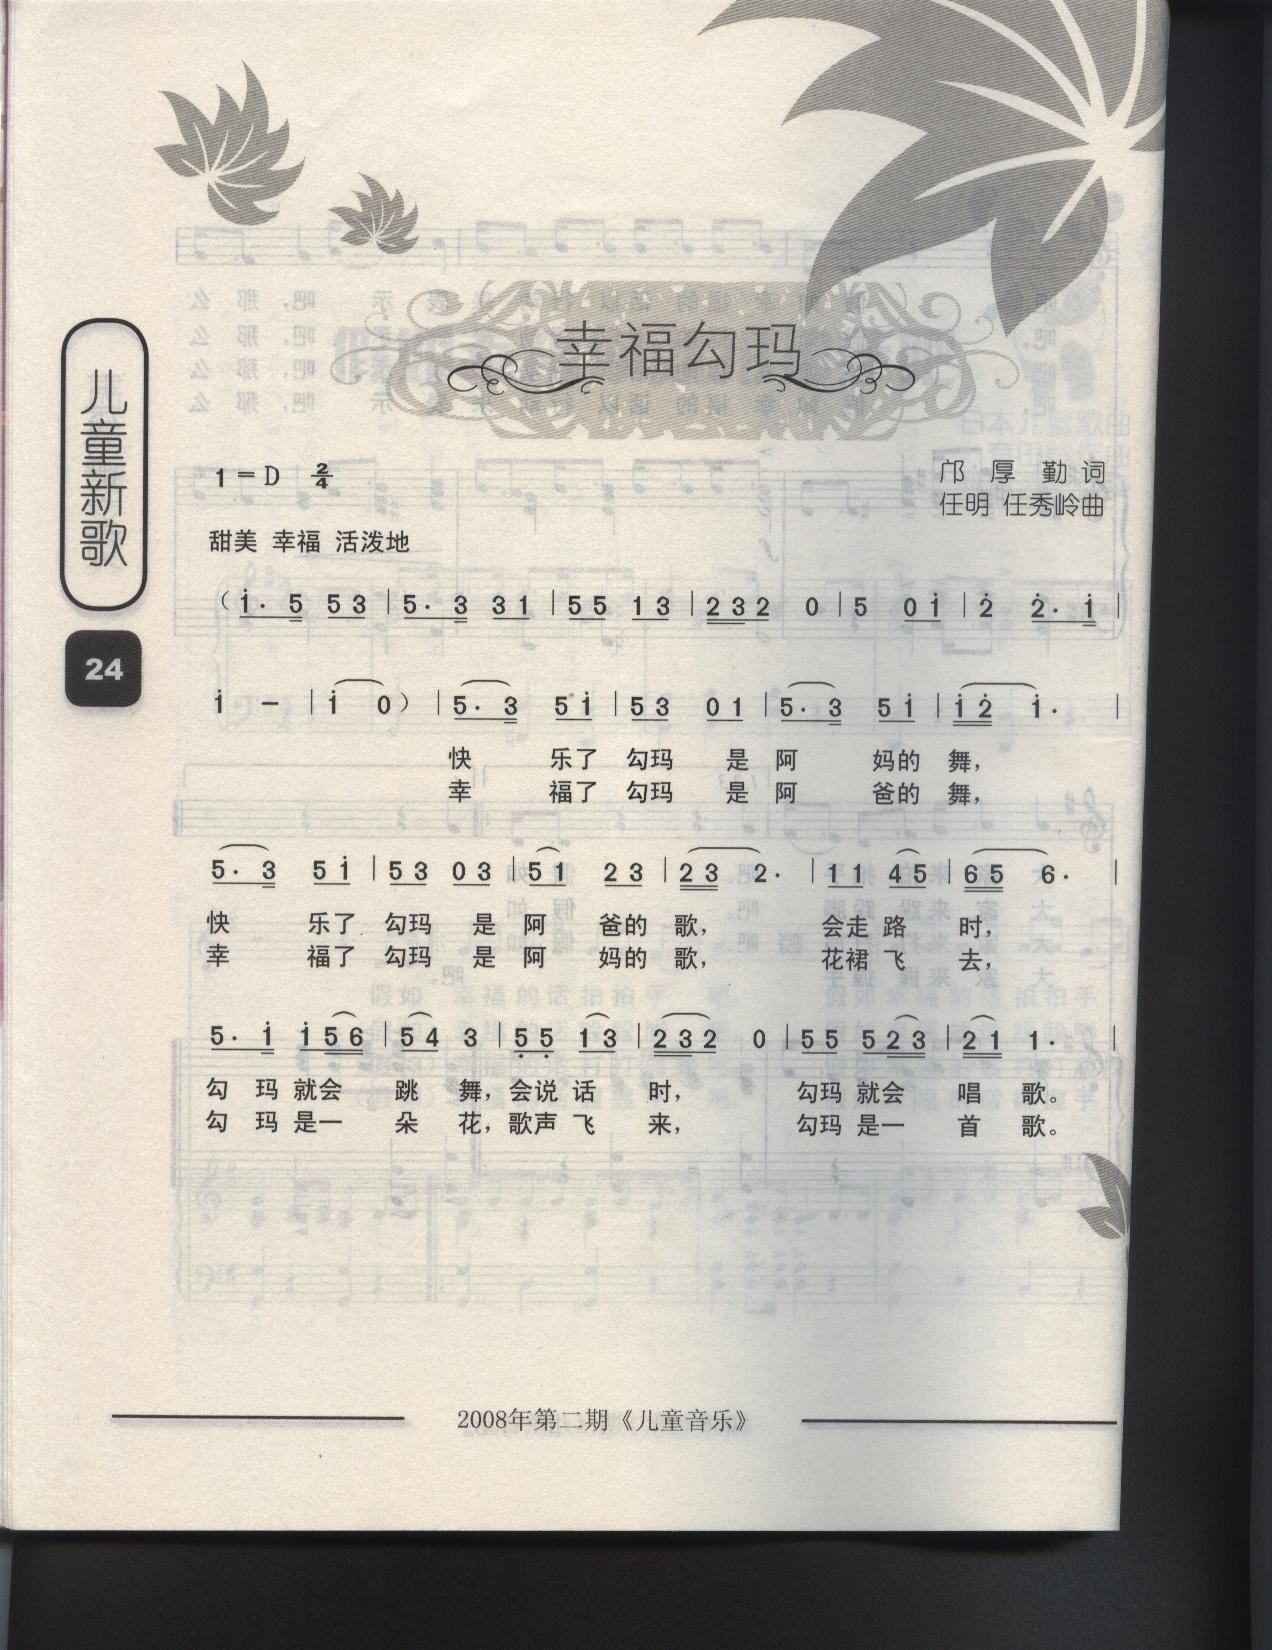 幸福勾玛
儿童新歌
24
1=D 2/4
邝厚勤 词
任明 任秀岭曲
甜美 幸福 活泼地
(i̇· 5 5 3 | 5· 3 3 1 | 5 5 1 3 | 2 3 2 0 | 5 0 i̇ | 2̇ 2̇· i̇ |
i̇ - | i̇ 0) | 5· 3 5 i̇ | 5 3 0 1 | 5· 3 5 i̇ | i̇ 2̇ i̇· |
快 乐了 勾玛 是 阿 妈的 舞,
幸 福了 勾玛 是 阿 爸的 舞,
5· 3 5 i̇ | 5 3 0 3 | 5 1 2 3 | 2 3 2· | 1 1 4 5 | 6 5 6· |
快 乐了 勾玛 是 阿 爸的 歌, 会走 路 时,
幸 福了 勾玛 是 阿 妈的 歌, 花裙 飞 去,
5· i̇ i̇ 5 6 | 5 4 3 | 5̣ 5̣ 1 3 | 2 3 2 0 | 5 5 5 2 3 | 2 1 1· |
勾 玛 就会 跳 舞, 会说 话 时, 勾玛 就会 唱 歌。
勾 玛 是一 朵 花, 歌声 飞 来, 勾玛 是一 首 歌。
2008年第二期《儿童音乐》